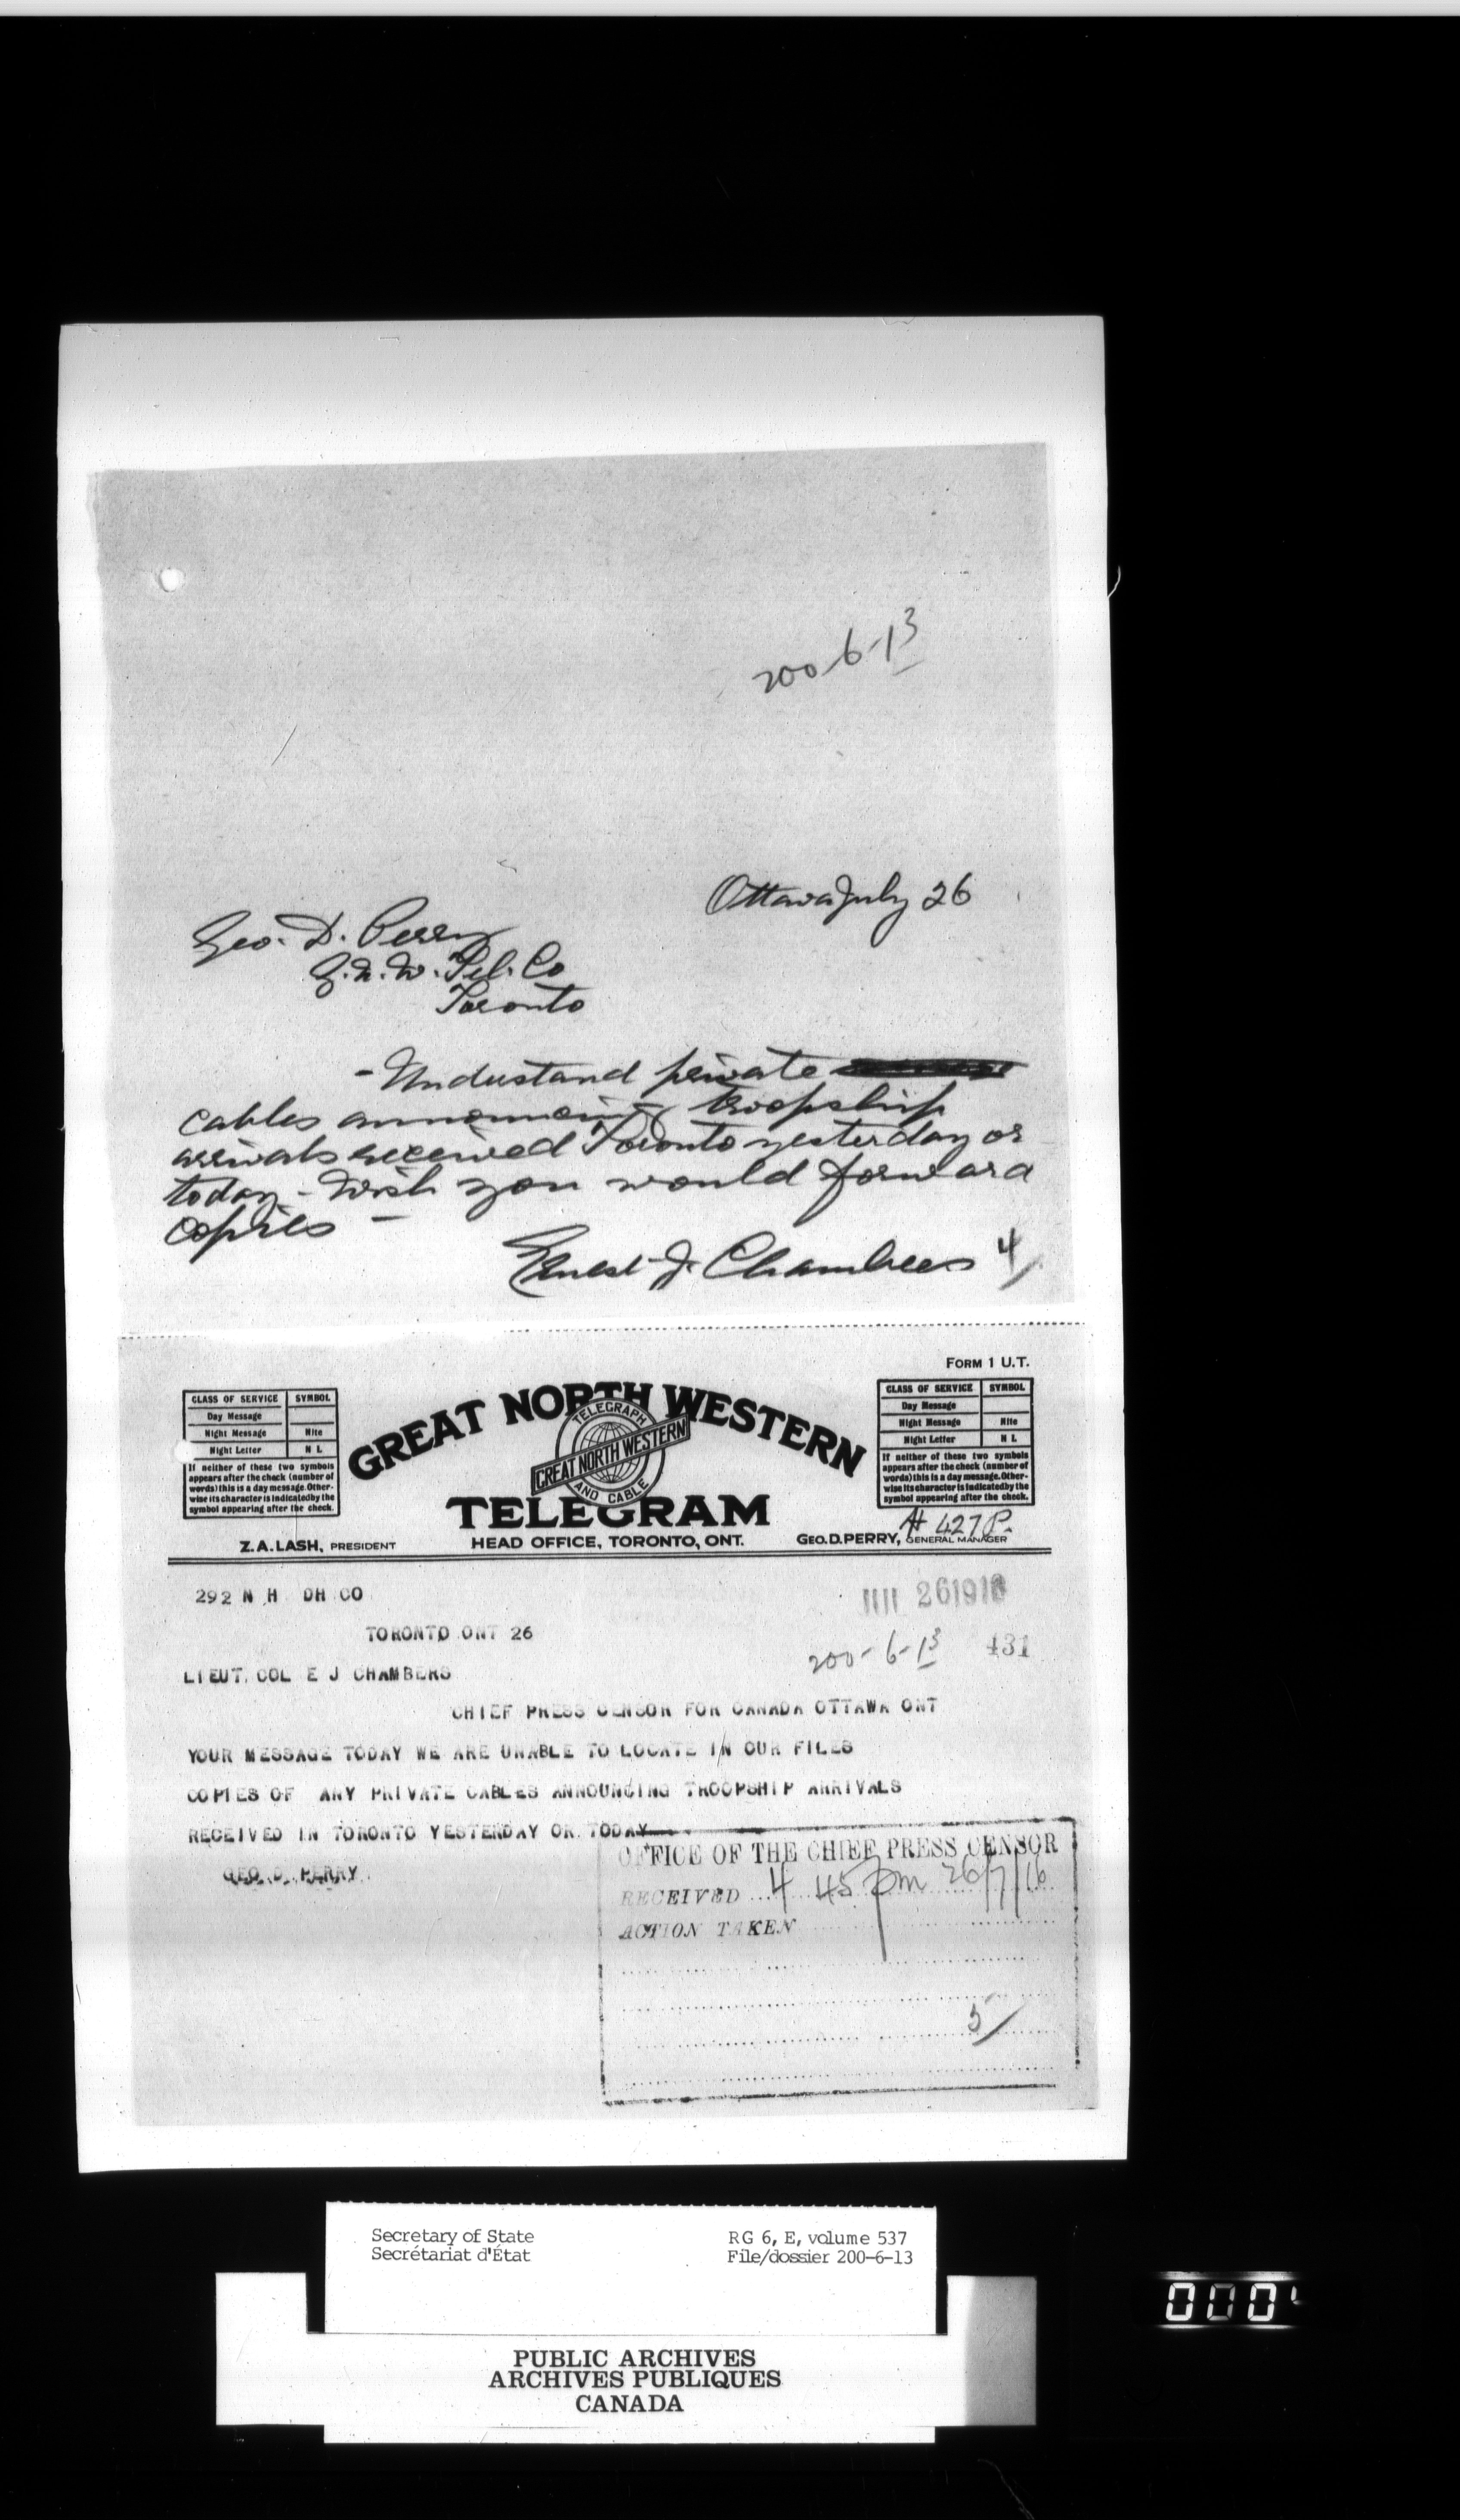 200-6-13
Ottawa July 26
Geo. D. Perry
G.N.W. Tel. Co
Toronto
- Understand private
cables announcing troopship
arrivals received Toronto yesterday or
today - Wish you would forward
copies -
Ernest J. Chambers
4/
FORM 1 U.T.
CLASS OF SERVICE SYMBOL
Day Message
Night Message Nite
Night Letter N L
If neither of these two symbols
appears after the check (number of
words) this is a day message. Other-
wise its character is indicated by the
symbol appearing after the check.
GREAT NORTH WESTERN
TELEGRAPH
GREAT NORTH WESTERN
AND CABLE
TELEGRAM
CLASS OF SERVICE SYMBOL
Day Message
Night Message Nite
Night Letter N L
If neither of these two symbols
appears after the check (number of
words) this is a day message. Other-
wise its character is indicated by the
symbol appearing after the check.
427P.
Z.A. LASH, PRESIDENT HEAD OFFICE, TORONTO, ONT. GEO. D. PERRY, GENERAL MANAGER
292 N H DH CO
261916
TORONTO ONT 26
200-6-13 431
LIEUT. COL E J CHAMBERS
CHIEF PRESS CENSOR FOR CANADA OTTAWA ONT
YOUR MESSAGE TODAY WE ARE UNABLE TO LOCATE IN OUR FILES
COPIES OF ANY PRIVATE CABLES ANNOUNCING TROOPSHIP ARRIVALS
RECEIVED IN TORONTO YESTERDAY OR TODAY
GEO. D. PERRY
OFFICE OF THE CHIEF PRESS CENSOR
RECEIVED 4 45 pm 26/7/16
ACTION TAKEN
5/
Secretary of State RG 6, E, volume 537
Secrétariat d'État File/dossier 200-6-13
PUBLIC ARCHIVES
ARCHIVES PUBLIQUES
CANADA
000